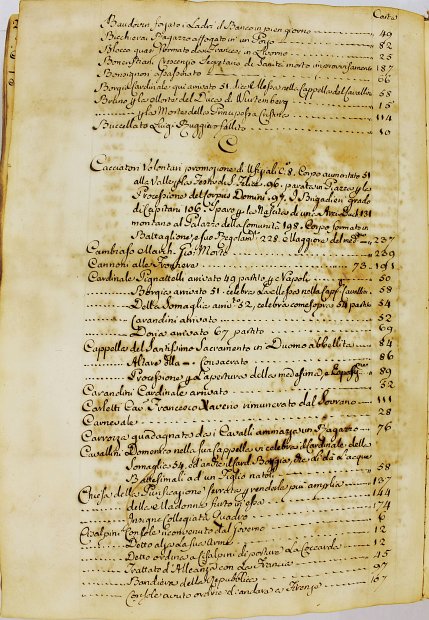 Carta
Baudovin forzato i Ladri il Banco in pien giorno 49
Bicchierai Ragazzo affogato in un Pozzo 82
Blocco quasi formato da Francesi in Livorno 25
Bonenfant Crescenzio Segretario di Sanità morto improvvisamente 187
Bonsignori assassinato 66
Borgia Cardinale qui arrivato 51. Dice Messa nella Cappella del Cavallini 58
Arrivo del Duca di Wurtemberg 15
Morte della Principessa 114
Buccellato Luigi Ruggiero fallito 10
C
Cacciatori Volontari promozione di Ufiziali C. 8. Corpo aumentato 51
alla Valle per la Festa di S. Felice 96. parata in Piazza per la
Processione del Corpus Domini 97. I Brigadieri grado
di Capitani 106. Sparo per la Nascita di un Arciduca 131
montano al Palazzo della Comunità 198. Corpo formato in
Battaglione, e suo Regolam.to 228. e Maggiore del med.mo 237
Cambiaso March. Gio: Morto 239
Cannoni alla Fortezza 73. 191
Cardinale Pignattelli arrivato 49 partito per Napoli 51
Borgia arrivato 51. celebra La Messa nella Capp. Cavallini 58
Della Somaglia arriv.o 52, celebra come sopra 54 partito 54
Carandini arrivato 52
Doria arrivato 67. partito 69
Cappella del Santissimo Sacramento in Duomo abbellita 84
Altare Consacrato 86
Processione per L'apertura della medesima, e 89
Carandini Cardinale arrivato 52
Carletti Cav. Francesco Saverio rimunerato dal Sovrano 111
Carnevale 28
Carrozza guadagnata dai Cavalli ammazza un Ragazzo 76
Cavallini Domenico nella sua Cappella vi celebra il Cardinale della
Somaglia 54. ed anche il Card. Borgia, che di dà L'acque
Battesimali ad un Figlio natoli 58
Chiesa della Purificazione serrata per renderla più ampia 137
della Madonna furto in essa 144
Insigne Collegiata Quadro 174
Cisalpini Console riconosciuto dal Governo 6
Detto alza La sua Arme 12
Detto ordina a Cisalpini di portare La Coccarda 12
Trattato d'Alleanza con La Francia 45
Bandiera della Repubblica 97
Console avuto ordine di andare a Firenze 167